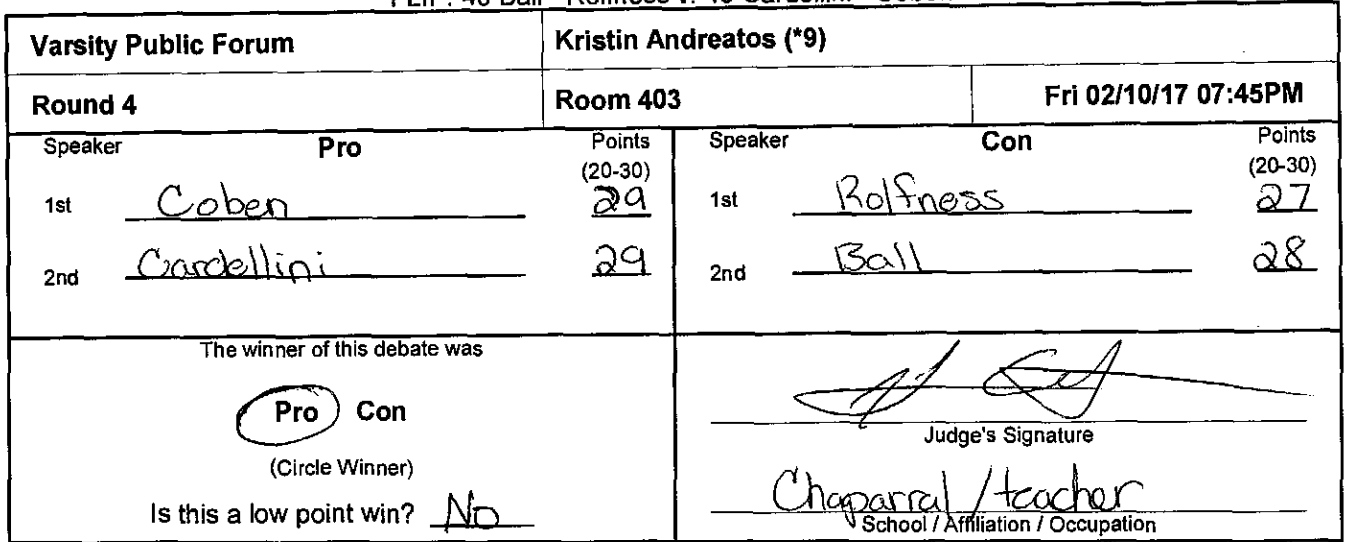 Varsity Public Forum
Kristin Andreatos (*9)
Round 4
Room 403
Fri 02/10/17 07:45PM
Speaker Pro Points
(20-30)
1st Coben 29
2nd Cardellini 29
Speaker Con Points
(20-30)
1st Rolfness 27
2nd Ball 28
The winner of this debate was
Pro Con
(Circle Winner)
Is this a low point win? No
Judge's Signature
Chaparral / teacher
School / Affiliation / Occupation